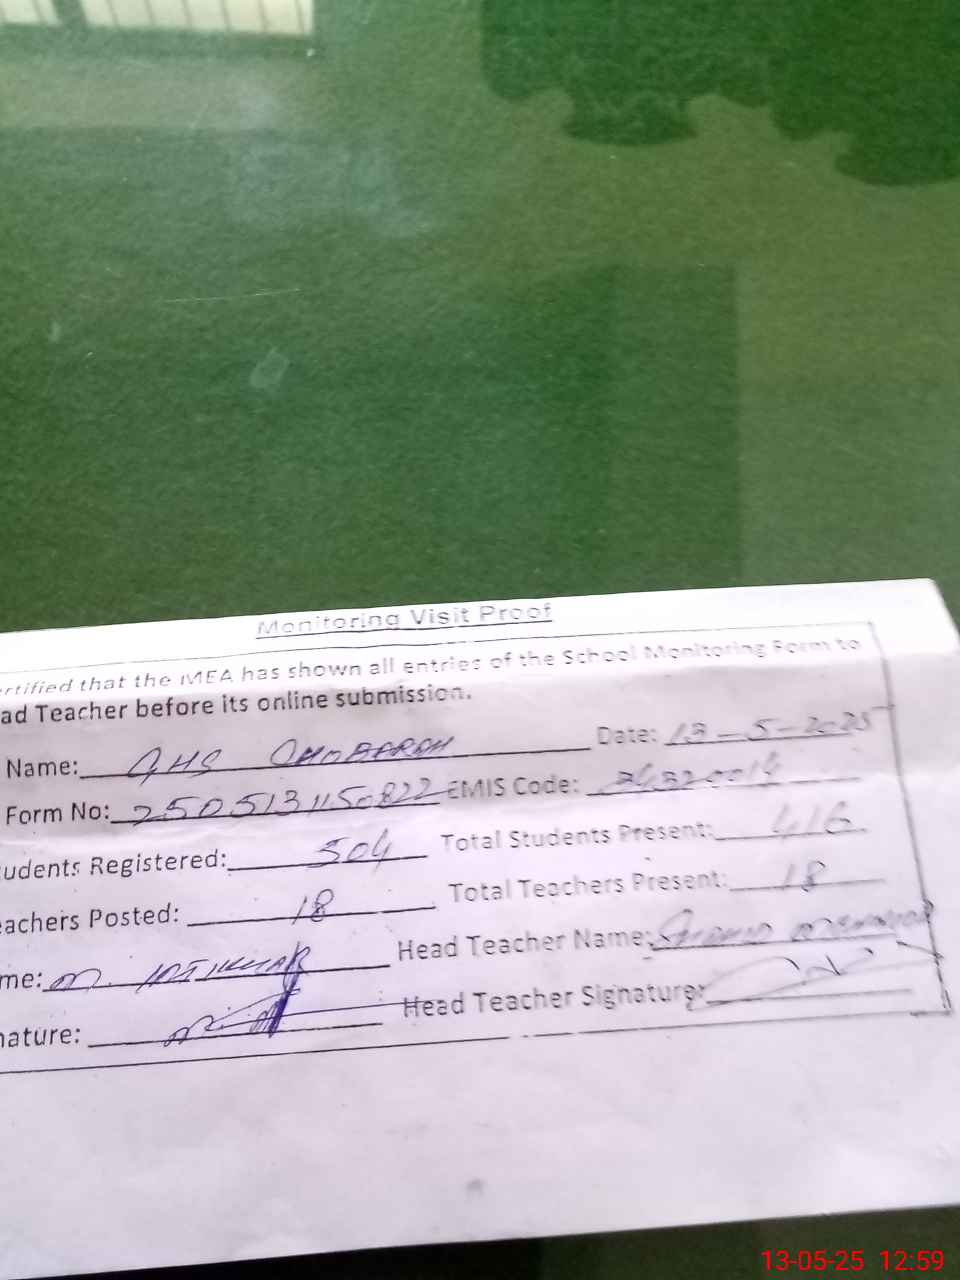 Monitoring Visit Proof
ertified that the MEA has shown all entries of the School Monitoring Form to
ad Teacher before its online submission.
Name: GHS CHOBARAH Date: 13-5-2025
Form No: 2505131150822 EMIS Code:
udents Registered: 504 Total Students Present: 416
eachers Posted: 18 Total Teachers Present: 18
me: M. IFTIKHAR Head Teacher Name:
nature: Head Teacher Signature:
13-05-25 12:59